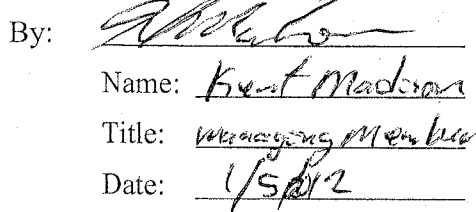 By:
Name: Kent Madison
Title: Managing Member
Date: 1/5/2012